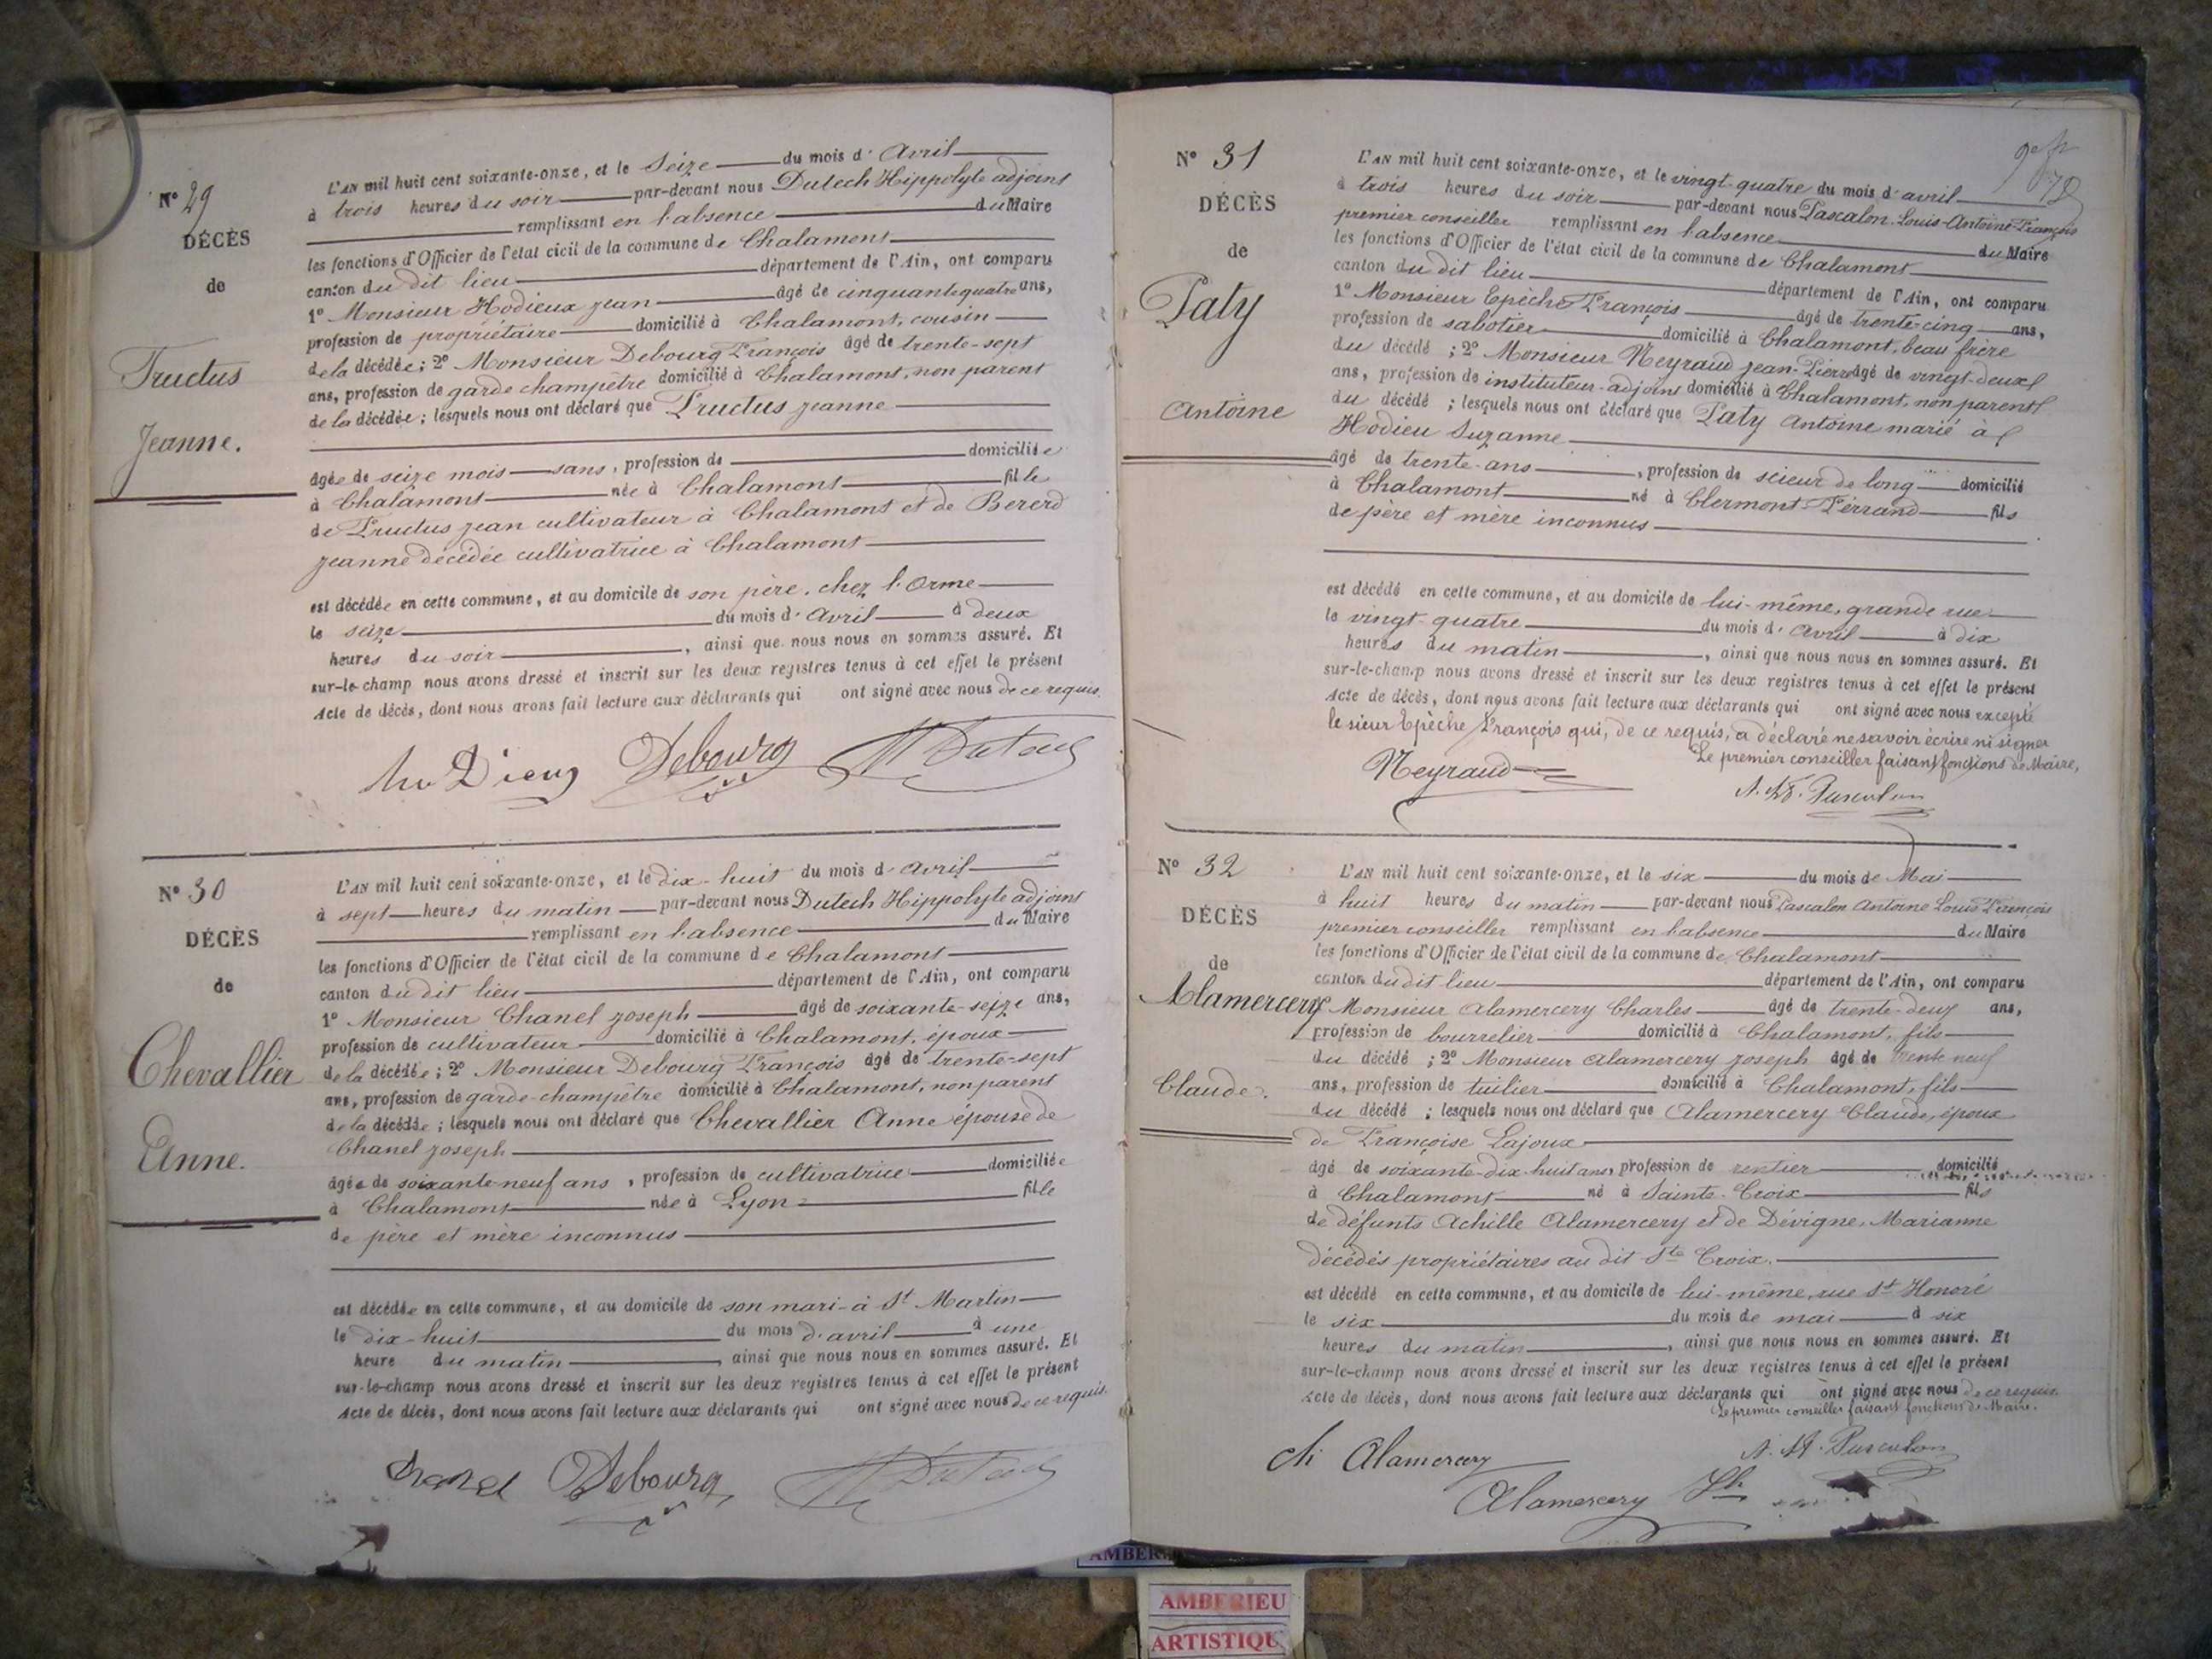 N° 29
DÉCÈS
de
Fructus
Jeanne.
L'AN mil huit cent soixante-onze, et le Seize du mois d'Avril
à trois heures du soir par-devant nous Dutech Hippolyte adjoint
remplissant en l'absence du Maire
les fonctions d'Officier de l'état civil de la commune de Chalamont
canton du dit lieu département de l'Ain, ont comparu
1° Monsieur Hodieux Jean âgé de cinquante quatre ans,
profession de propriétaire domicilié à Chalamont, cousin
de la décédée; 2° Monsieur Debourg François âgé de trente-sept
ans, profession de garde champêtre domicilié à Chalamont, non parent
de la décédée; lesquels nous ont déclaré que Fructus Jeanne
âgée de seize mois sans, profession de domiciliée
à Chalamont née à Chalamont fille
de Fructus Jean cultivateur à Chalamont et de Bererd
Jeanne décédée cultivatrice à Chalamont
est décédée en cette commune, et au domicile de son père, chez l'Orme
le seize du mois d'Avril à deux
heures du soir, ainsi que nous nous en sommes assuré. Et
sur-le-champ nous avons dressé et inscrit sur les deux registres tenus à cet effet le présent
Acte de décès, dont nous avons fait lecture aux déclarants qui ont signé avec nous de ce requis.
Debourg
N° 30
DÉCÈS
de
Chevallier
Anne.
L'AN mil huit cent soixante-onze, et le dix-huit du mois d'Avril
à sept heures du matin par-devant nous Dutech Hippolyte adjoint
remplissant en l'absence du Maire
les fonctions d'Officier de l'état civil de la commune de Chalamont
canton du dit lieu département de l'Ain, ont comparu
1° Monsieur Chanel Joseph âgé de soixante-seize ans,
profession de cultivateur domicilié à Chalamont, époux
de la décédée; 2° Monsieur Debourg François âgé de trente-sept
ans, profession de garde-champêtre domicilié à Chalamont, non parent
de la décédée; lesquels nous ont déclaré que Chevallier Anne épouse de
Chanel Joseph
âgée de soixante neuf ans, profession de cultivatrice domiciliée
à Chalamont née à Lyon fille
de père et mère inconnus
est décédée en cette commune, et au domicile de son mari à St Martin
le dix-huit du mois d'avril à une
heure du matin, ainsi que nous nous en sommes assuré. Et
sur-le-champ nous avons dressé et inscrit sur les deux registres tenus à cet effet le présent
Acte de décès, dont nous avons fait lecture aux déclarants qui ont signé avec nous de ce requis.
Chanel Debourg
N° 31
DÉCÈS
de
Paty
Antoine
L'AN mil huit cent soixante-onze, et le vingt-quatre du mois d'avril
à trois heures du soir par-devant nous Pascalon Louis-Antoine-François
premier conseiller remplissant en l'absence du Maire
les fonctions d'Officier de l'état civil de la commune de Chalamont
canton du dit lieu département de l'Ain, ont comparu
1° Monsieur Epèche François âgé de trente-cinq ans,
profession de sabotier domicilié à Chalamont, beau frère
du décédé; 2° Monsieur Neyraud Jean-Pierre âgé de vingt-deux
ans, profession de instituteur-adjoint domicilié à Chalamont, non parent
du décédé; lesquels nous ont déclaré que Paty Antoine marié à
Hodieu Suzanne
âgé de trente-ans, profession de scieur de long domicilié
à Chalamont né à Clermont-Ferrand fils
de père et mère inconnus
est décédé en cette commune, et au domicile de lui-même, grande rue
le vingt-quatre du mois d'Avril à dix
heures du matin, ainsi que nous nous en sommes assuré. Et
sur-le-champ nous avons dressé et inscrit sur les deux registres tenus à cet effet le présent
Acte de décès, dont nous avons fait lecture aux déclarants qui ont signé avec nous excepté
le sieur Epèche François qui, de ce requis, a déclaré ne savoir écrire ni signer
Le premier conseiller faisant fonctions de Maire,
Neyraud
N° 32
DÉCÈS
de
Alamercery
Claude.
L'AN mil huit cent soixante-onze, et le six du mois de Mai
à huit heures du matin par-devant nous Pascalon Antoine Louis François
premier conseiller remplissant en l'absence du Maire
les fonctions d'Officier de l'état civil de la commune de Chalamont
canton du dit lieu département de l'Ain, ont comparu
Monsieur Alamercery Charles âgé de trente-deux ans,
profession de bourrelier domicilié à Chalamont, fils
du décédé; 2° Monsieur Alamercery Joseph âgé de trente neuf
ans, profession de tuilier domicilié à Chalamont, fils
du décédé; lesquels nous ont déclaré que Alamercery Claude, époux
de Françoise Lajoux
âgé de soixante-dix-huit ans, profession de rentier domicilié
à Chalamont né à Sainte-Croix fils
de défunts Achille Alamercery et de Dévigne, Marianne
décédés propriétaires au dit Ste Croix.
est décédé en cette commune, et au domicile de lui-même, rue St Honoré
le six du mois de mai à six
heures du matin, ainsi que nous nous en sommes assuré. Et
sur-le-champ nous avons dressé et inscrit sur les deux registres tenus à cet effet le présent
Acte de décès, dont nous avons fait lecture aux déclarants qui ont signé avec nous de ce requis.
Le premier conseiller faisant fonctions de Maire.
ch Alamercery
Alamercery Jh
AMBERIEU
ARTISTIQU